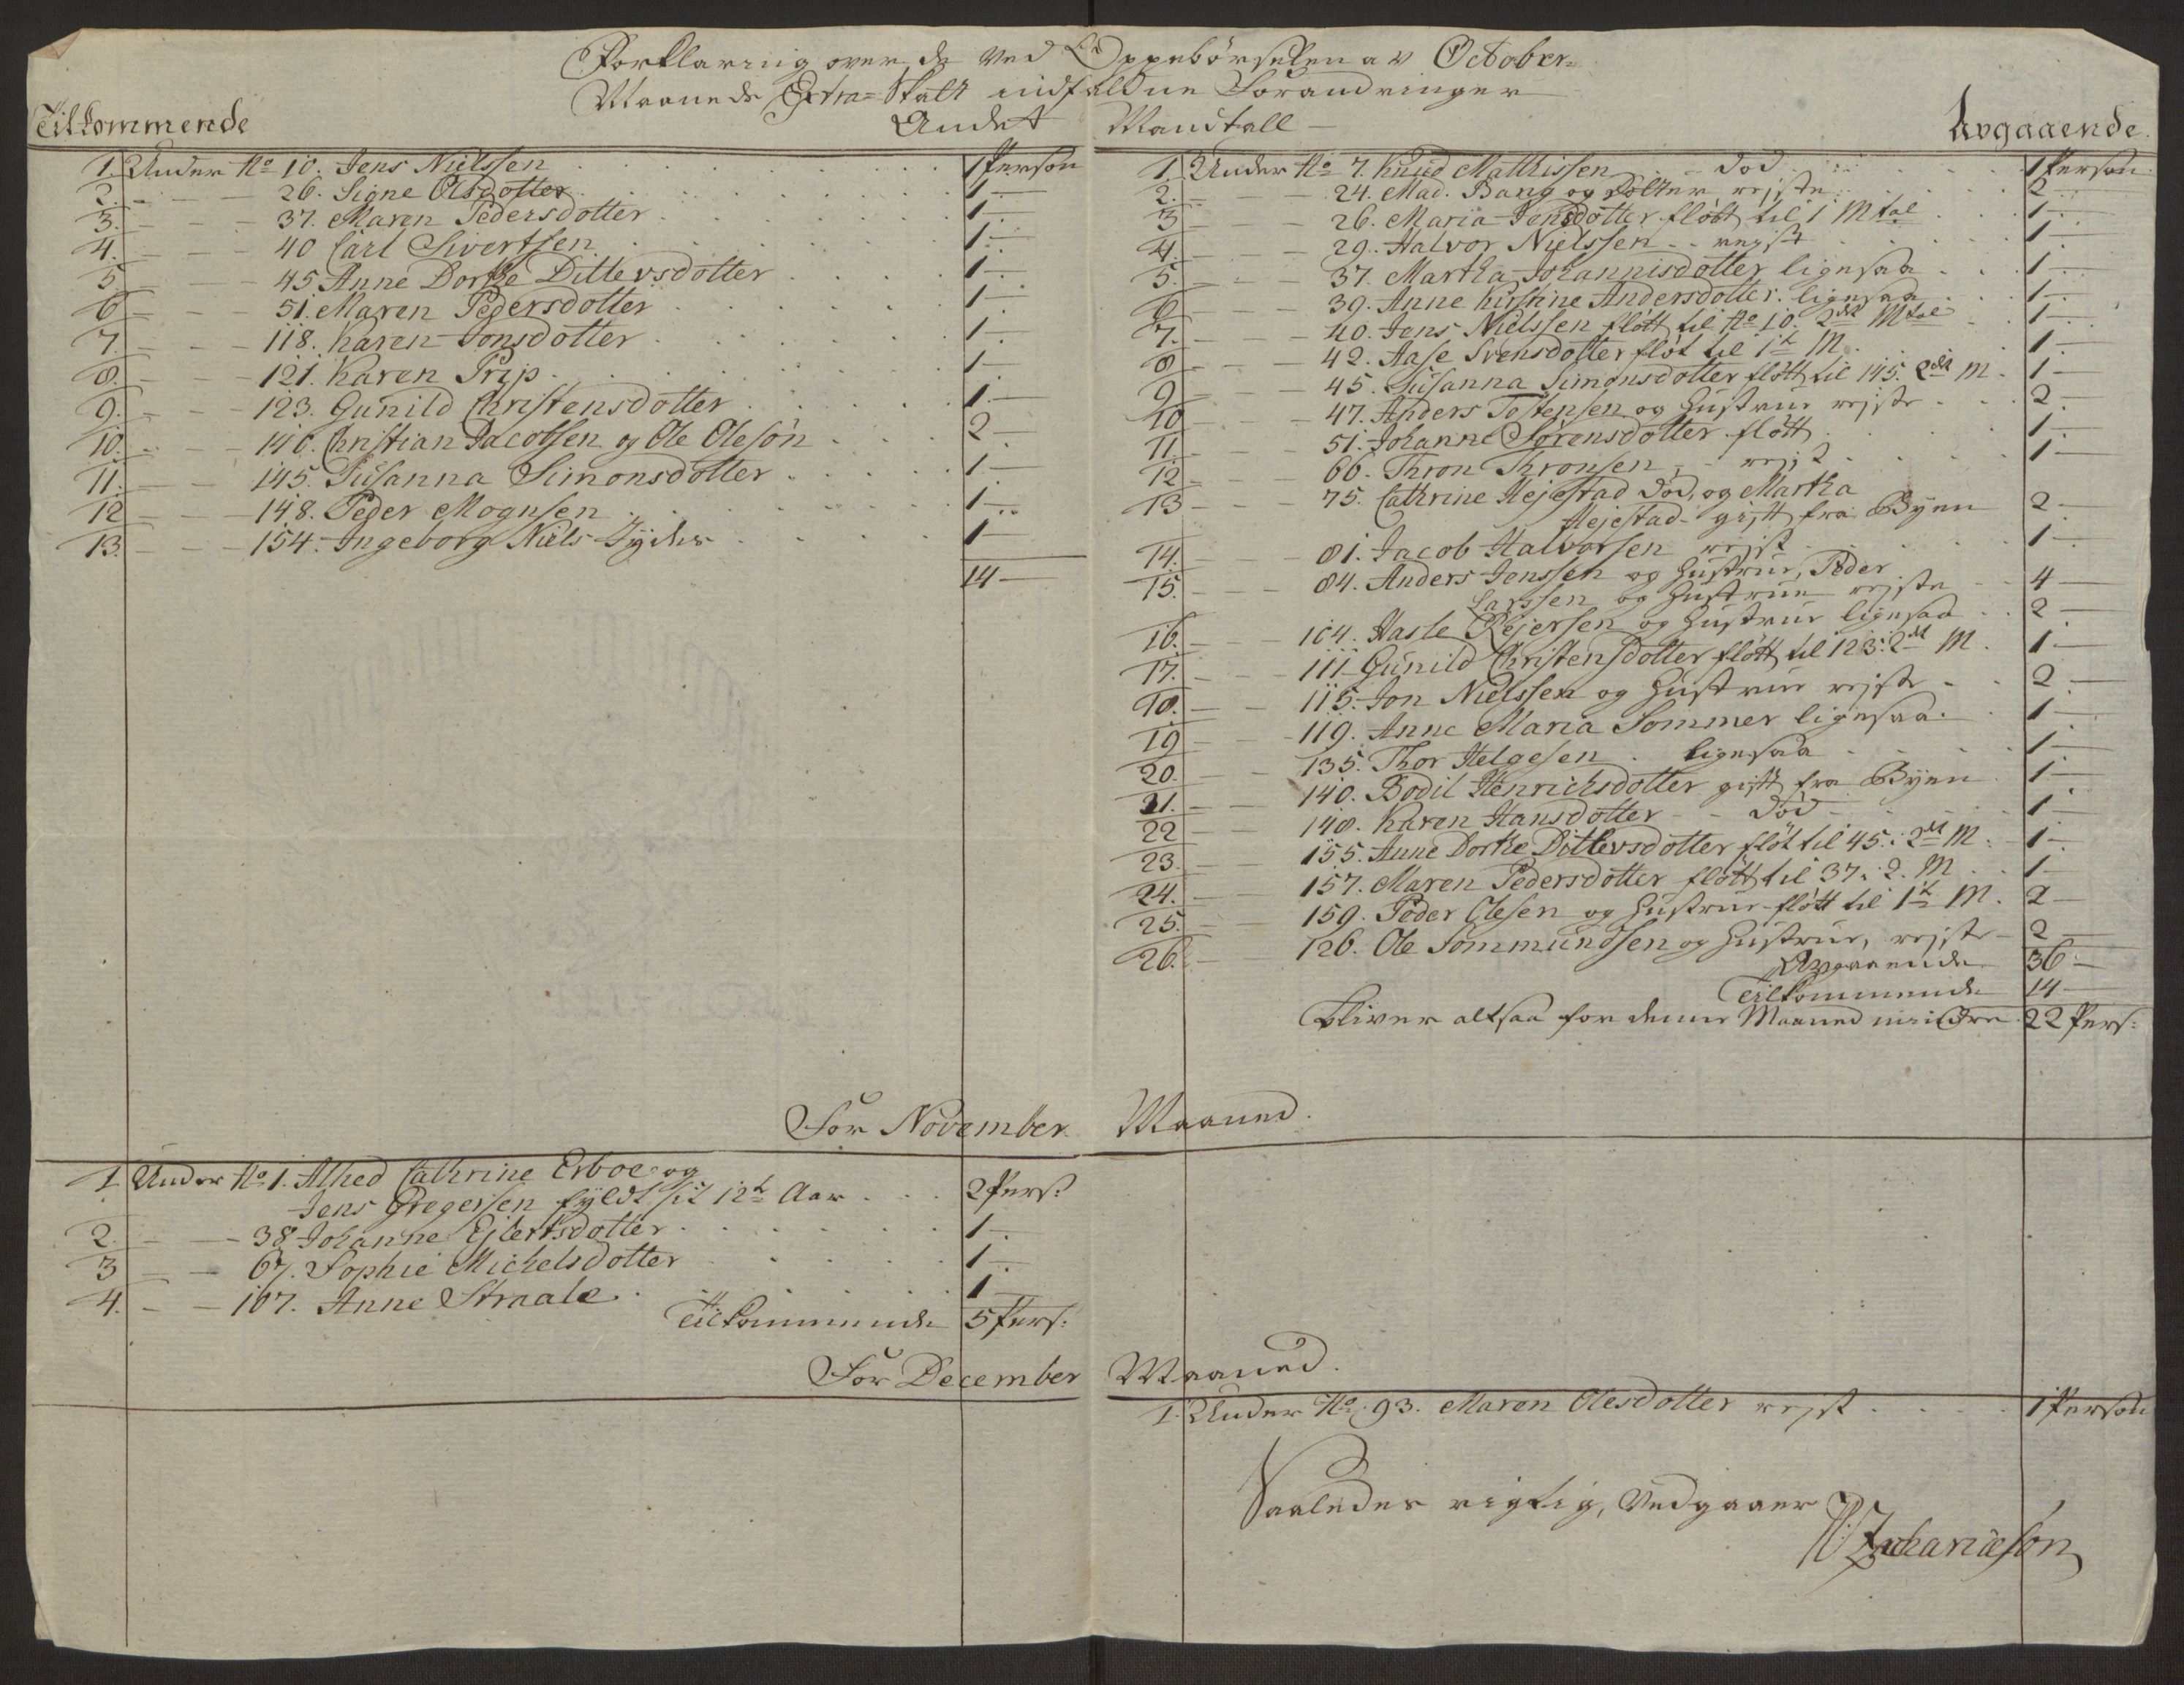 Forklaring over de ved Oppebørselen av October
Maaneds Extra-Skatt indfaldne Forandringer
Andet Mandtall
Tilkommende
1. Under No 10. Jens Nielssen 1 Person
2. 26. Signe Olsdotter 1
3. 37. Maren Pedersdotter 1
4. 40 Carl Sivertsen 1
5 45 Anne Dorthe Ditlevsdotter 1
6 51. Maren Pedersdotter 1
7. 118. Karen Jonsdotter 1
8. 121. Karen Prip 1
9. 123. Gunild Christensdotter 1
10. 140. Christian Jacobsen og Ole Olesøn 2
11. 145. Susanna Simonsdotter 1
12 148. Peder Mognsen 1
13. 154. Ingeborg Niels 1
14
Avgaaende
1. Under No 7. Knud Mathissen død 1 Person
2. 24. Mad. Bang og Dotter rejste 2
3 26. Maria Jensdotter fløtt til 1 Mtal 1
4. 29. Halvor Nielssen rejst 1
5. 37. Martha Johannisdotter ligesaa 1
6 39. Anne Kirstine Andersdotter ligesaa 1
7. 40. Jens Nielssen fløtt til No 10. 2det Mtal 1
8 42. Aase Svensdotter fløt til 1te M. 1
9 45. Susanna Simonsdotter fløtt til 145. 2det M. 1
10 47. Anders Tostensen og Hustrue rejste 2
11. 51. Johanne Sørensdotter fløtt 1
12 66. Thron Thronsen, rejst 1
13 75. Cathrine Hejestad død, og Martha
Hejestad gift fra Byen 2
14. 81. Jacob Halvorsen rejst 1
15. 84. Anders Jenssen og Hustrue, Peder
Larssen og Hustrue rejste 4
16. 104. Hasle Rejersen og Hustrue ligesaa 2
17. 111 Gunild Christensdotter fløtt til 123. 2det M. 1
18. 115. Jon Nielssen og Hustrue rejste 2
19 119. Anne Maria Sommer ligesaa 1
20. 135. Thor Helgesen ligesaa 1
21. 140. Bodil Henrichsdotter gift fra Byen 1
22 148. Karen Hansdotter død 1
23. 155. Anne Dorthe Ditlevsdotter fløt til 45. 2det M. 1
24. 157. Maren Pedersdotter fløtt til 37. 2. M 1
25. 159. Peder Olesen og Hustrue fløtt til 1te M. 2
26. 126. Ole Sommundsen og Hustrue, rejste 2
Avgaaende 36
Tilkommende 14
Bliver altsaa for denne Maaned mindre 22 Pers:
For November Maaned.
1 Under No 1. Alhed Cathrine Erboe og
Jens Gregersen fyldt sit 12te Aar 2 Pers:
2. 38 Johanne Ejlertsdotter 1
3 67. Sophie Michelsdotter 1
4. 107. Anne Straale 1
Tilkommende 5 Pers:
For December Maaned.
1. Under No. 93. Maren Olesdotter rejst 1 Person
Saaledes rigtig, vedgaaer
Zachariæsøn